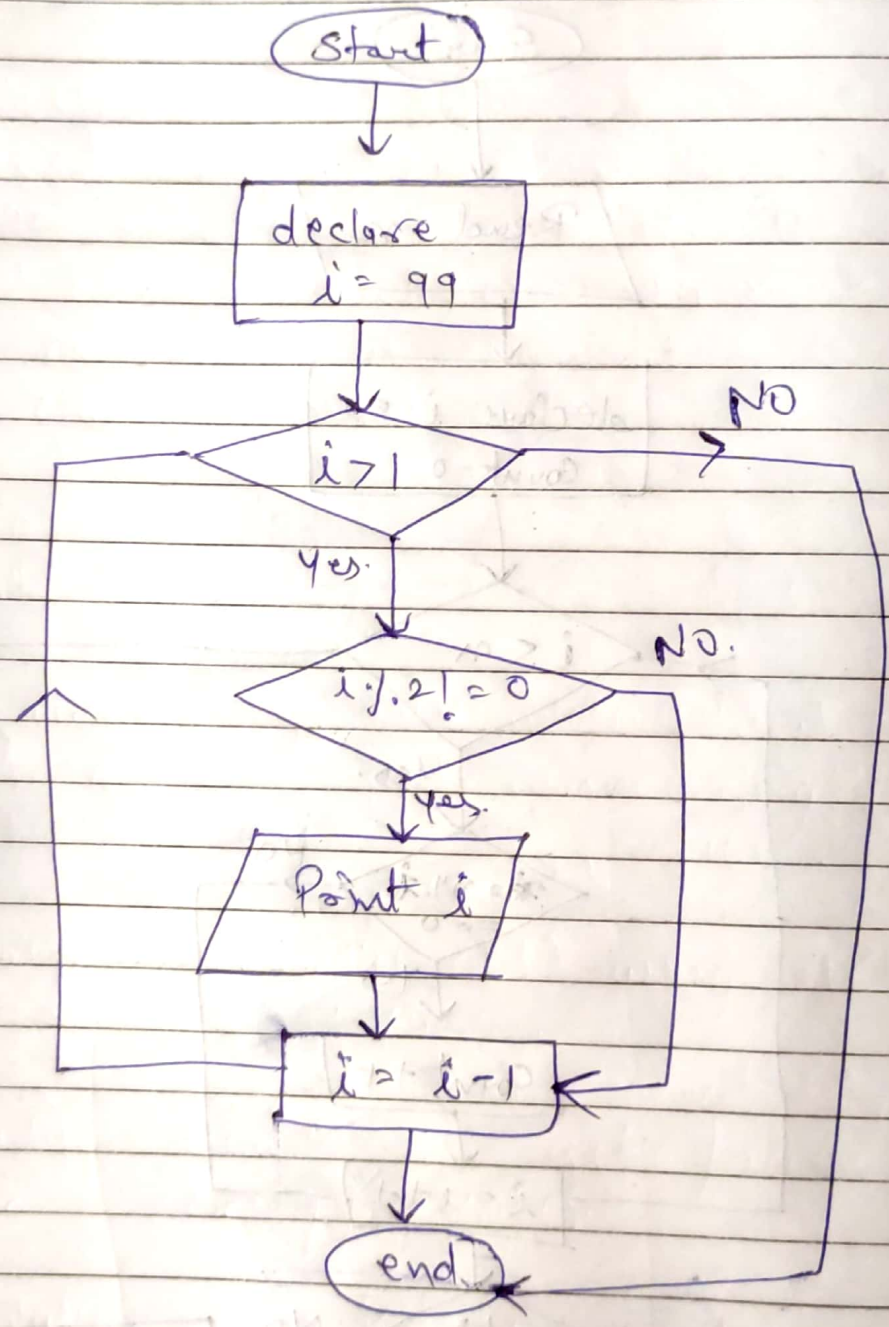 Start
declare
i = 99
i > 1
NO
Yes.
i % 2! = 0
NO.
Yes.
Print i
i = i - 1
end